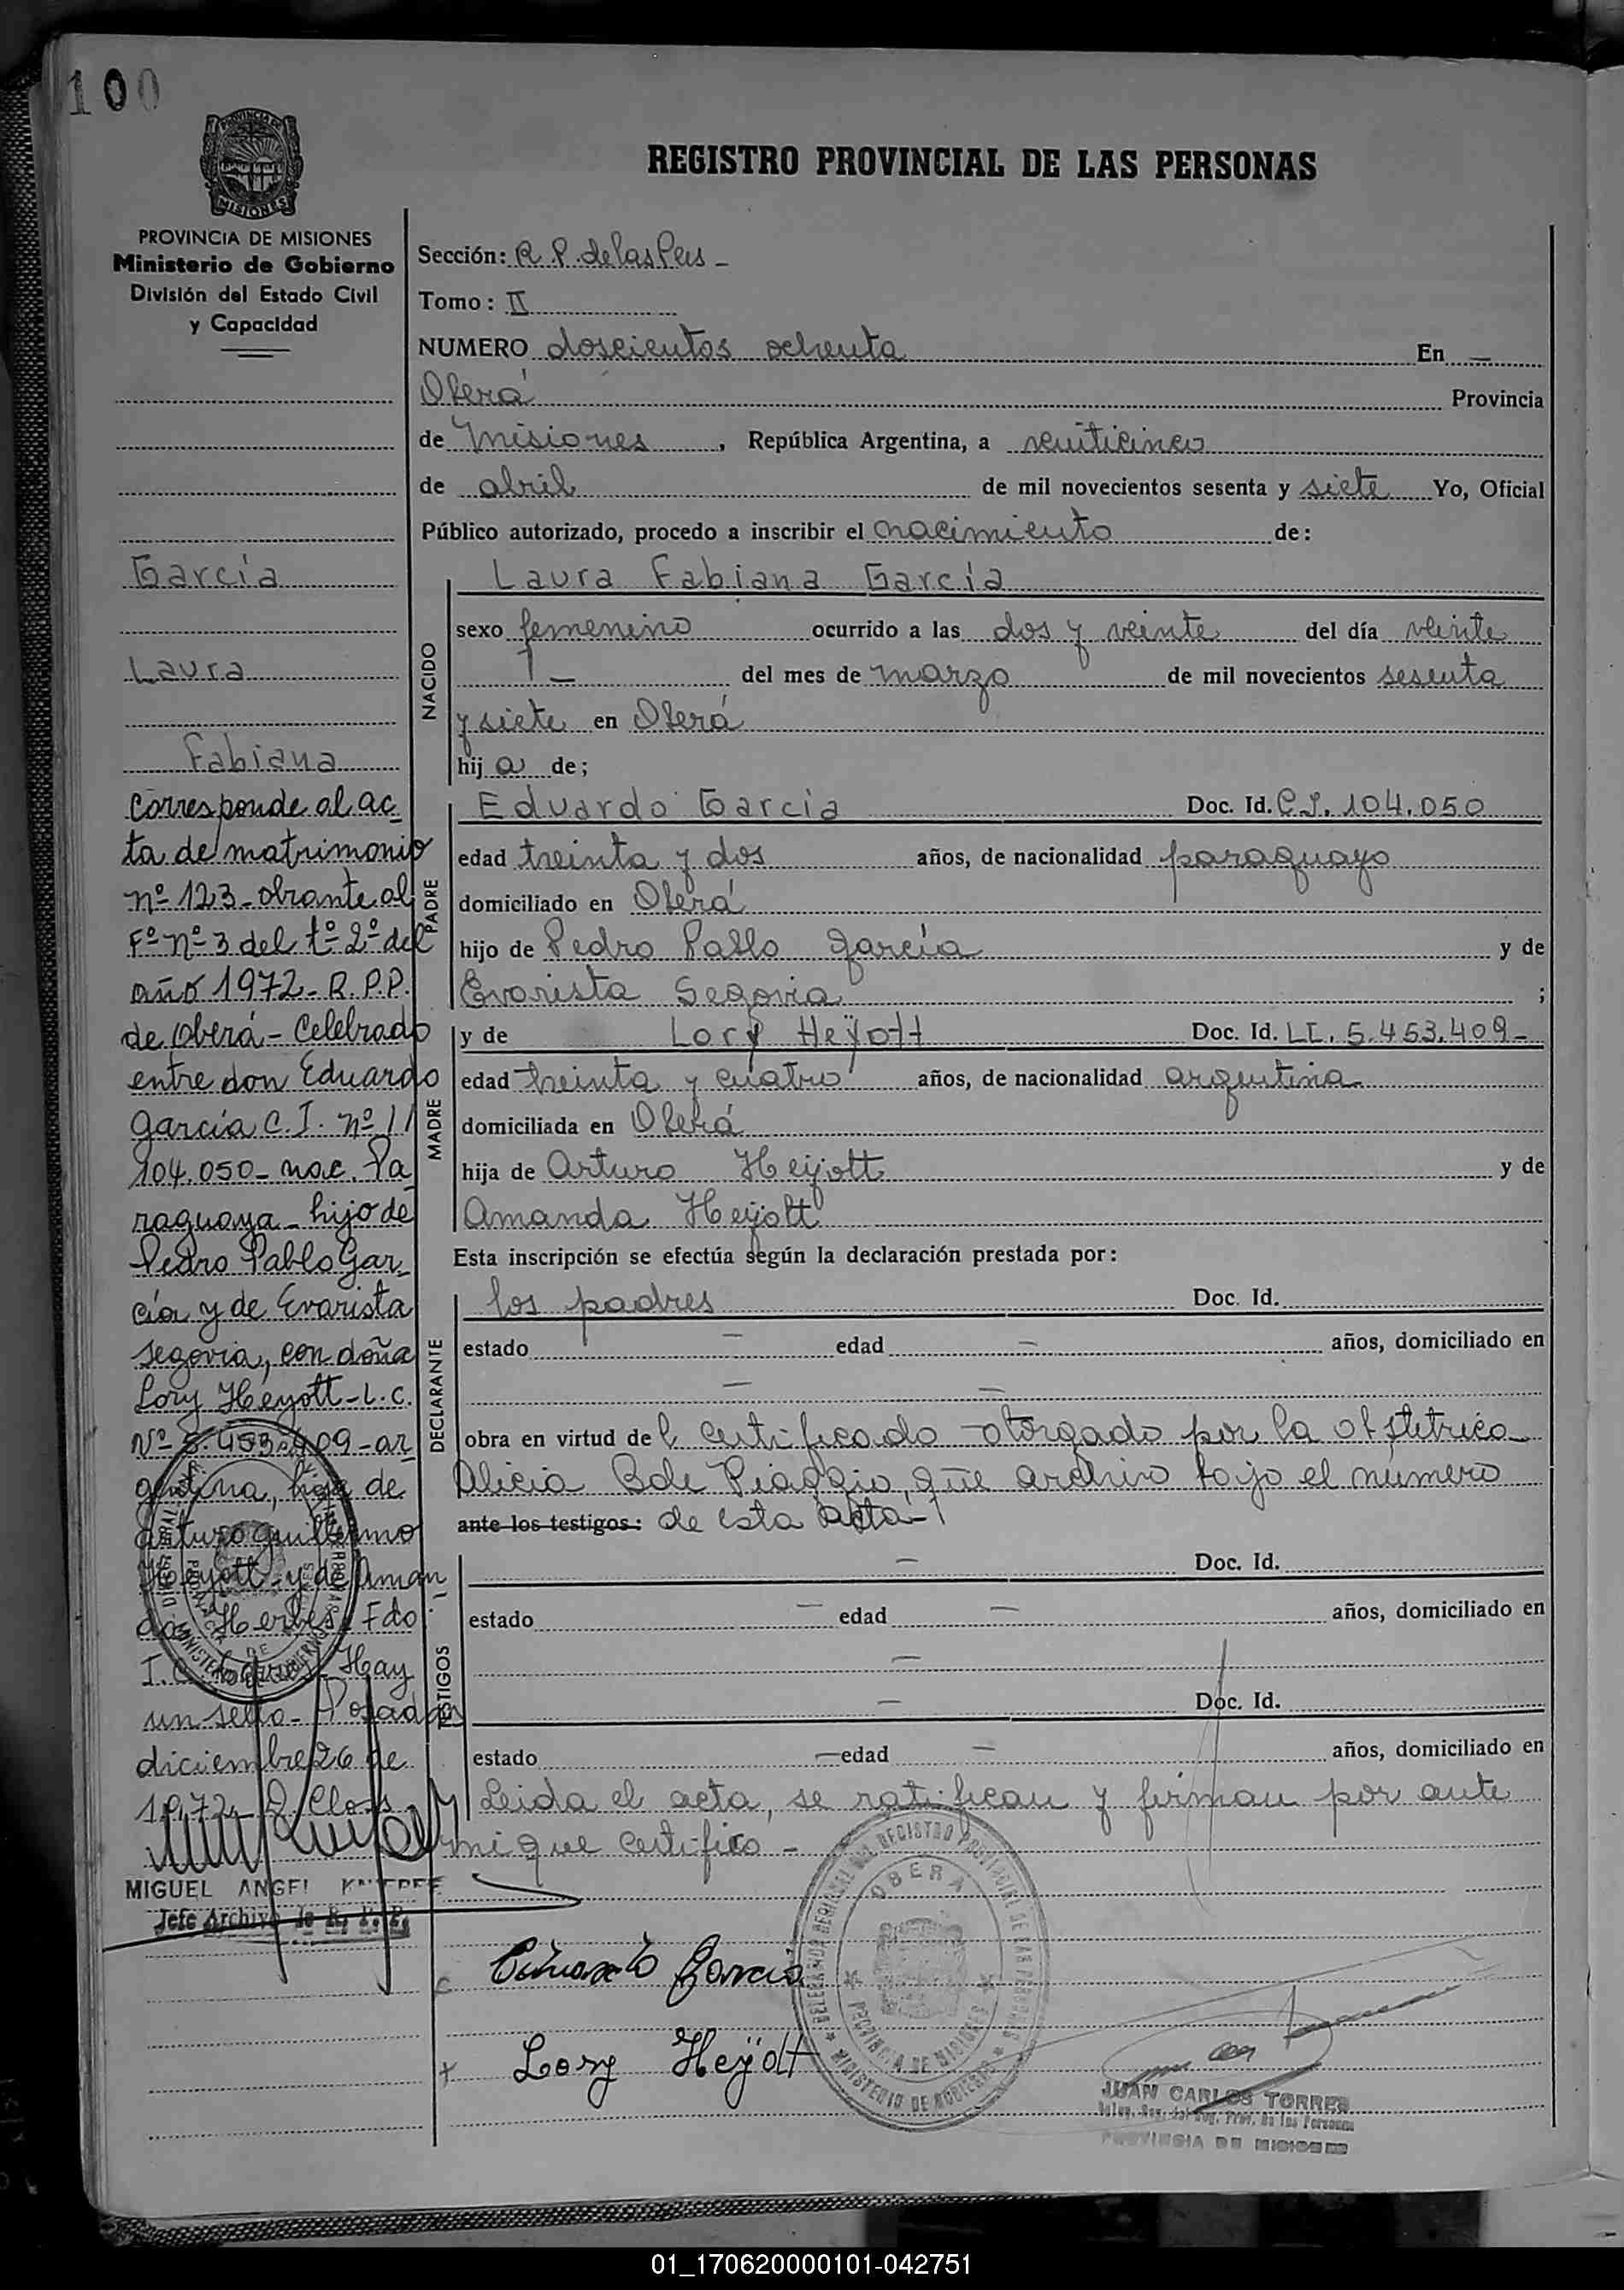 100
PROVINCIA DE MISIONES
Ministerio de Gobierno
División del Estado Civil
y Capacidad
García
Laura
Fabiana
Corresponde al ac-
ta de matrimonio
nº 123 - obrante al
Fº nº 3 del tº 2º del
año 1972 - R.P.P.
de Oberá - Celebrado
entre don Eduardo
García C.I. nº
104.050 - nac. Pa-
raguaya - hijo de
Pedro Pablo Gar-
cía y de Evarista
Segovia, con doña
Lory Heyott - L.C.
Nº 5.453.409 - ar-
gentina, hija de
Arturo Guillermo
Heyott - y de Aman
da Herbes Fdo
I.C. Hay
un sello - Posadas
diciembre 26 de
1972
MIGUEL ANGEL
Jefe Archivo de R. P. P.
REGISTRO PROVINCIAL DE LAS PERSONAS
Sección: R. P. de las Pers -
Tomo: II
NUMERO doscientos ochenta En -
Oberá Provincia
de Misiones, República Argentina, a veinticinco
de abril de mil novecientos sesenta y siete Yo, Oficial
Público autorizado, procedo a inscribir el nacimiento de:
NACIDO
Laura Fabiana García
sexo femenino ocurrido a las dos y veinte del día veinte
- del mes de marzo de mil novecientos sesenta
y siete en Oberá
hija de;
PADRE
Eduardo García Doc. Id. C.I. 104.050
edad treinta y dos años, de nacionalidad paraguayo
domiciliado en Oberá
hijo de Pedro Pablo García y de
Evarista Segovia ;
MADRE
y de Lory Heÿott Doc. Id. LC. 5.453.409 -
edad treinta y cuatro años, de nacionalidad argentina
domiciliada en Oberá
hija de Arturo Heijott y de
Amanda Heijott
Esta inscripción se efectúa según la declaración prestada por:
DECLARANTE
los padres Doc. Id.
estado - edad - años, domiciliado en
- -
obra en virtud del certificado otorgado por la obstetrica
Alicia B de Piaggio, que archivo bajo el número
ante los testigos: de esta acta -
TESTIGOS
- Doc. Id.
estado - edad - años, domiciliado en
-
- Doc. Id.
estado - edad - años, domiciliado en
Leida el acta, se ratifican y firman por ante
mi que certifico -
Eduardo García
Lory Heÿott
DELEGACION REGIONAL DEL REGISTRO PROVINCIAL DE LAS PERSONAS
OBERA
PROVINCIA DE MISIONES
MINISTERIO DE GOBIERNO
JUAN CARLOS TORRES
Deleg. Reg. del Reg. Prov. de las Personas
PROVINCIA DE MISIONES
01_170620000101-042751